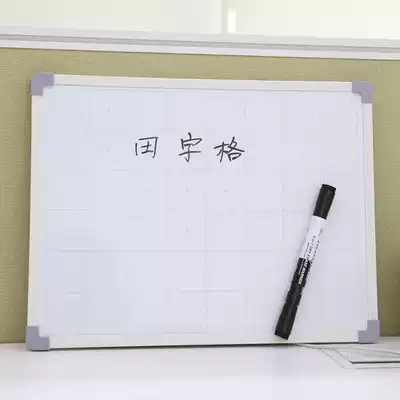 田字格